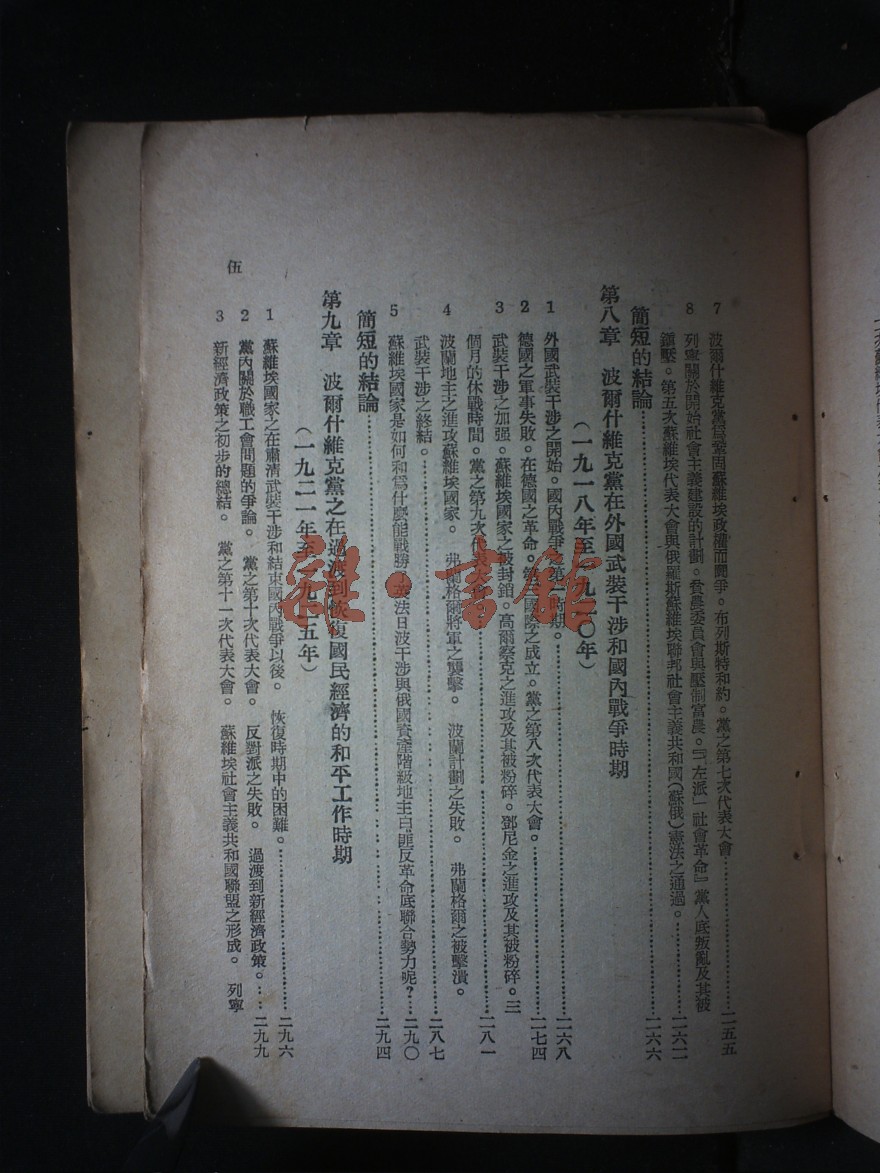 7 波爾什維克黨爲鞏固蘇維埃政權而鬬爭。布列斯特和約。黨之第七次代表大會⋯⋯二五五
8 列寧關於開始社會主義建設的計劃。貧農委員會與壓制富農。『「左派」社會革命』黨人底叛亂及其被
鎮壓。第五次蘇維埃代表大會與俄羅斯蘇維埃聯邦社會主義共和國(蘇俄)憲法之通過。⋯⋯二六二
簡短的結論⋯⋯二六六
第八章 波爾什維克黨在外國武裝干涉和國內戰爭時期
(一九一八年至一九二〇年)
1 外國武裝干涉之開始。國內戰爭之第一時期。⋯⋯二六八
2 德國之軍事失敗。在德國之革命。第三國際之成立。黨之第八次代表大會。⋯⋯二七四
3 武裝干涉之加强。蘇維埃國家之被封鎖。高爾察克之進攻及其被粉碎。鄧尼金之進攻及其被粉碎。三
個月的休戰時間。黨之第九次代表大會。⋯⋯二八一
4 波蘭地主之進攻蘇維埃國家。 弗蘭格爾將軍之襲擊。 波蘭計劃之失敗。 弗蘭格爾之被擊潰。
武裝干涉之終結。⋯⋯二八七
5 蘇維埃國家是如何和爲什麽能戰勝了英法日波干涉與俄國資產階級地主白匪反革命底聯合勢力呢?⋯⋯二九〇
簡短的結論⋯⋯二九四
第九章 波爾什維克黨之在過渡到恢復國民經濟的和平工作時期
(一九二一年至一九二五年)
1 蘇維埃國家之在肅清武裝干涉和結束國內戰爭以後。 恢復時期中的困難。⋯⋯二九六
2 黨內關於職工會問題的爭論。 黨之第十次代表大會。 反對派之失敗。 過渡到新經濟政策。⋯⋯二九九
3 新經濟政策之初步的總結。 黨之第十一次代表大會。 蘇維埃社會主義共和國聯盟之形成。 列寧
伍
雜·書館